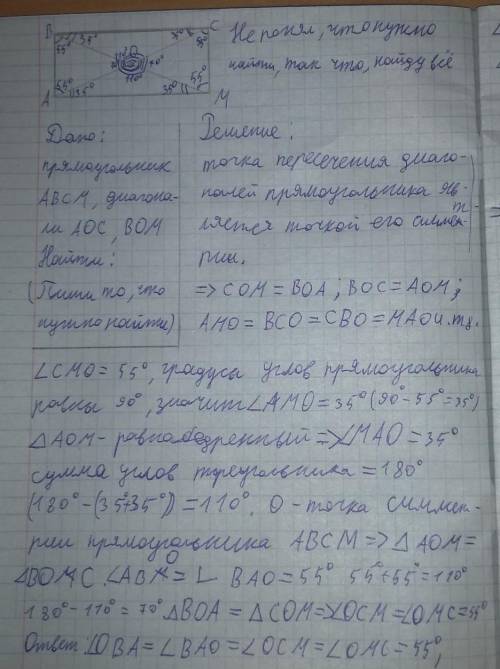 B C
55° 35° 35° 55°
110°
70° 70°
110°
55° 35° 35° 55°
A M
Не понял, что нужно
найти, так что, найду всё
Дано:
прямоугольник
ABCM, диагона-
ли AOC, BOM
Найти:
(Пиши то, что
нужно найти)
Решение:
точка пересечения диаго-
налей прямоугольника яв-
ляется точкой его симмет-
рии.
=> COM = BOA; BOC = AOM;
AMO = BCO = CBO = MAO и.т.д.
∠CMO = 55°, градусы углов прямоугольника
равны 90°, значит ∠AMO = 35° (90° - 55° = 35°)
△AOM - равнобедренный => ∠MAO = 35°
сумма углов треугольника = 180°
(180° - (35°+35°)) = 110°. O - точка симмет-
рии прямоугольника ABCM => △AOM =
△BOC. ∠ABO = ∠BAO = 55° 55° + 55° = 110°
180° - 110° = 70° △BOA = △COM => ∠OCM = ∠OMC = 55°
Ответ: ∠OBA = ∠BAO = ∠OCM = ∠OMC = 55°,